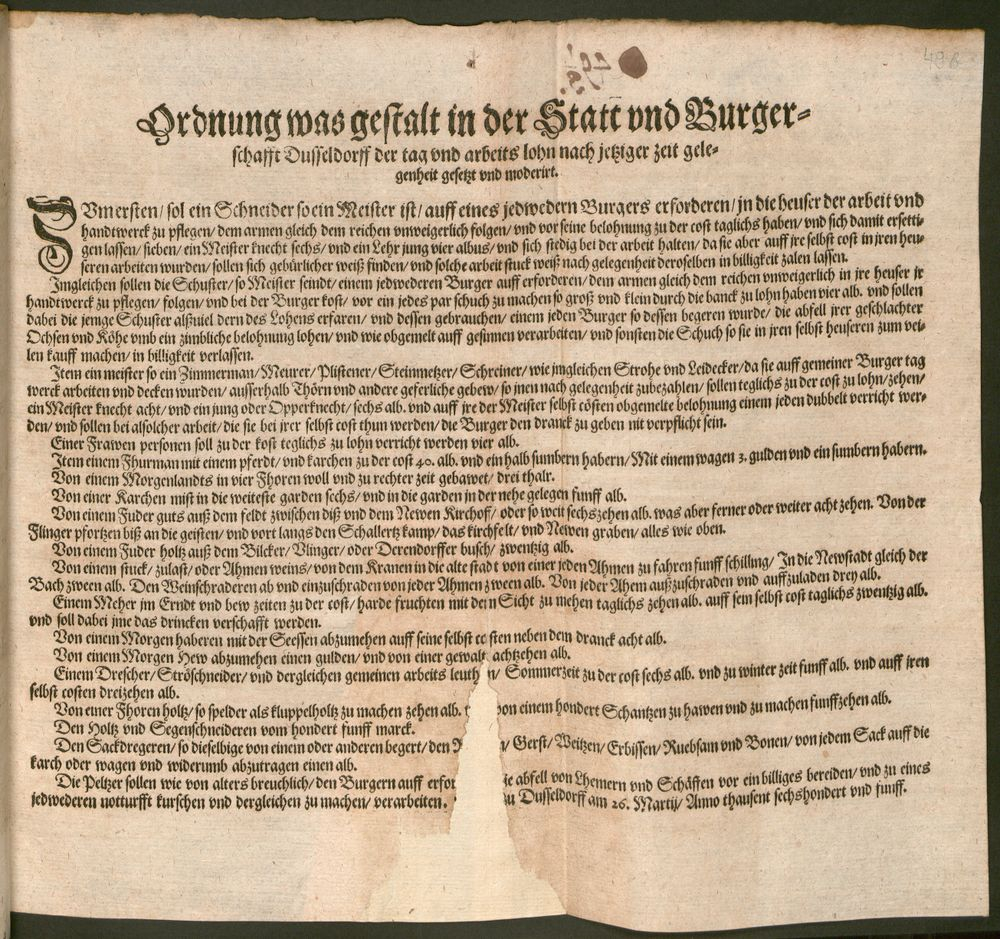 Ordnung was gestalt in der Statt vnd Burger-
schafft Dusseldorff der tag vnd arbeits lohn nach jetziger zeit gele-
genheit gesetzt vnd moderirt.
ZVm ersten/ sol ein Schneider so ein Meister ist/ auff eines jedwedern Burgers erforderen/ in die heuser der arbeit vnd
handtwerck zu pflegen/ dem armen gleich dem reichen vnweigerlich folgen/ vnd vor seine belohnung zu der cost taglichs haben/ vnd sich damit ersetti-
gen lassen/ sieben/ ein Meister knecht sechs/ vnd ein Lehr jung vier albus/ vnd sich stedig bei der arbeit halten/ da sie aber auff jre selbst cost in jren heu-
seren arbeiten wurden/ sollen sich gebürlicher weiß finden/ vnd solche arbeit stuck weiß nach gelegenheit deroselben in billigkeit zalen lassen.
Imgleichen sollen die Schuster/ so Meister seindt/ einem jedwederen Burger auff erforderen/ dem armen gleich dem reichen vnweigerlich in jre heuser jr
handtwerck zu pflegen/ folgen/ vnd bei der Burger kost/ vor ein jedes par schuch zu machen so groß vnd klein durch die banck zu lohn haben vier alb. vnd sollen
dabei die jenige Schuster alßuiel dern des Lohens erfaren/ vnd dessen gebrauchen/ einem jeden Burger so dessen begeren wurde/ die abfell jrer geschlachter
Ochsen vnd Köhe vmb ein zimbliche belohnung lohen/ vnd wie obgemelt auff gesinnen verarbeiten/ vnd sonsten die Schuch so sie in jren selbst heuseren zum vei-
len kauff machen/ in billigkeit verlassen.
Item ein meister so ein Zimmerman/ Meurer/ Plistener/ Steinmetzer/ Schreiner/ wie imgleichen Strohe vnd Leidecker/ da sie auff gemeiner Burger tag
werck arbeiten vnd decken wurden/ ausserhalb Thörn vnd andere geferliche gebew/ so jnen nach gelegenheit zubezahlen/ sollen teglichs zu der cost zu lohn/ zehen/
ein Meister knecht acht/ vnd ein jung oder Opperknecht/ sechs alb. vnd auff jre der Meister selbst cösten obgemelte belohnung einem jeden dubbelt verricht wer-
den/ vnd sollen bei alsolcher arbeit/ die sie bei jrer selbst cost thun werden/ die Burger den dranck zu geben nit verpflicht sein.
Einer Frawen personen soll zu der kost teglichs zu lohn verricht werden vier alb.
Item einem Fhurman mit einem pferdt/ vnd karchen zu der cost 40. alb. vnd ein halb sumbern habern/ Mit einem wagen 3. gulden vnd ein sumbern habern.
Von einem Morgenlandts in vier Fhoren woll vnd zu rechter zeit gebawet/ drei thalr.
Von einer Karchen mist in die weiteste garden sechs/ vnd in die garden in der nehe gelegen funff alb.
Von einem Fuder guts auß dem feldt zwischen diß vnd dem Newen Kirchof/ oder so weit sechszehen alb. was aber ferner oder weiter acht zehen. Von der
Flinger pfortzen biß an die geisten/ vnd vort langs den Schallertz kamp/ das kirchfelt/ vnd Newen graben/ alles wie oben.
Von einem Fuder holtz auß dem Bilcker/ Vlinger/ oder Derendorffer busch/ zwentzig alb.
Von einem stuck/ zulast/ oder Ahmen weins/ von dem Kranen in die alte stadt von einer jeden Ahmen zu fahren funff schilling/ In die Newstadt gleich der
Bach zween alb. Den Weinschraderen ab vnd einzuschraden von jeder Ahmen zween alb. Von jeder Ahem außzuschraden vnd auffzuladen drey alb.
Einem Meher jm Erndt vnd hew zeiten zu der cost/ harde fruchten mit dem Sicht zu mehen taglichs zehen alb. auff sein selbst cost taglichs zwentzig alb.
vnd soll dabei jme das drincken verschafft werden.
Von einem Morgen haberen mit der Seessen abzumehen auff seine selbst costen neben dem dranck acht alb.
Von einem Morgen Hew abzumehen einen gulden/ vnd von einer gewalt achtzehen alb.
Einem Drescher/ Ströschneider/ vnd dergleichen gemeinen arbeits leuthen/ Sommerzeit zu der cost sechs alb. vnd zu winter zeit funff alb. vnd auff jren
selbst costen dreizehen alb.
Von einer Fhoren holtz/ so spelder als kluppelholtz zu machen zehen alb. von einem hondert Schantzen zu hawen vnd zu machen funffzehen alb.
Den Holtz vnd Segenschneideren vom hondert funff marck.
Den Sackdregeren/ so dieselbige von einem oder anderen begert/ den Gerst/ Weitzen/ Erbissen/ Ruebsam vnd Bonen/ von jedem Sack auff die
karch oder wagen vnd widerumb abzutragen einen alb.
Die Peltzer sollen wie von alters breuchlich/ den Burgern auff abfell von Lhemern vnd Schäffen vor ein billiges bereiden/ vnd zu eines
jedwederen notturfft kurschen vnd dergleichen zu machen/ verarbeiten. zu Dusseldorff am 26. Martij/ Anno thausent sechshondert vnd funff.